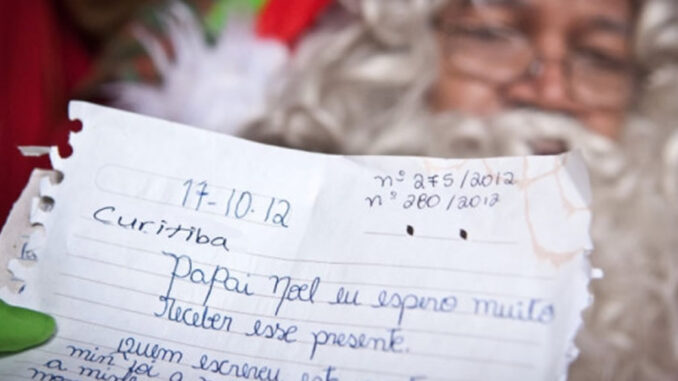 17-10-12
nº 275/2012
nº 280/2012
Curitiba
Papai Noel eu espero muito
Receber esse presente.
Quem escreveu
min foi a